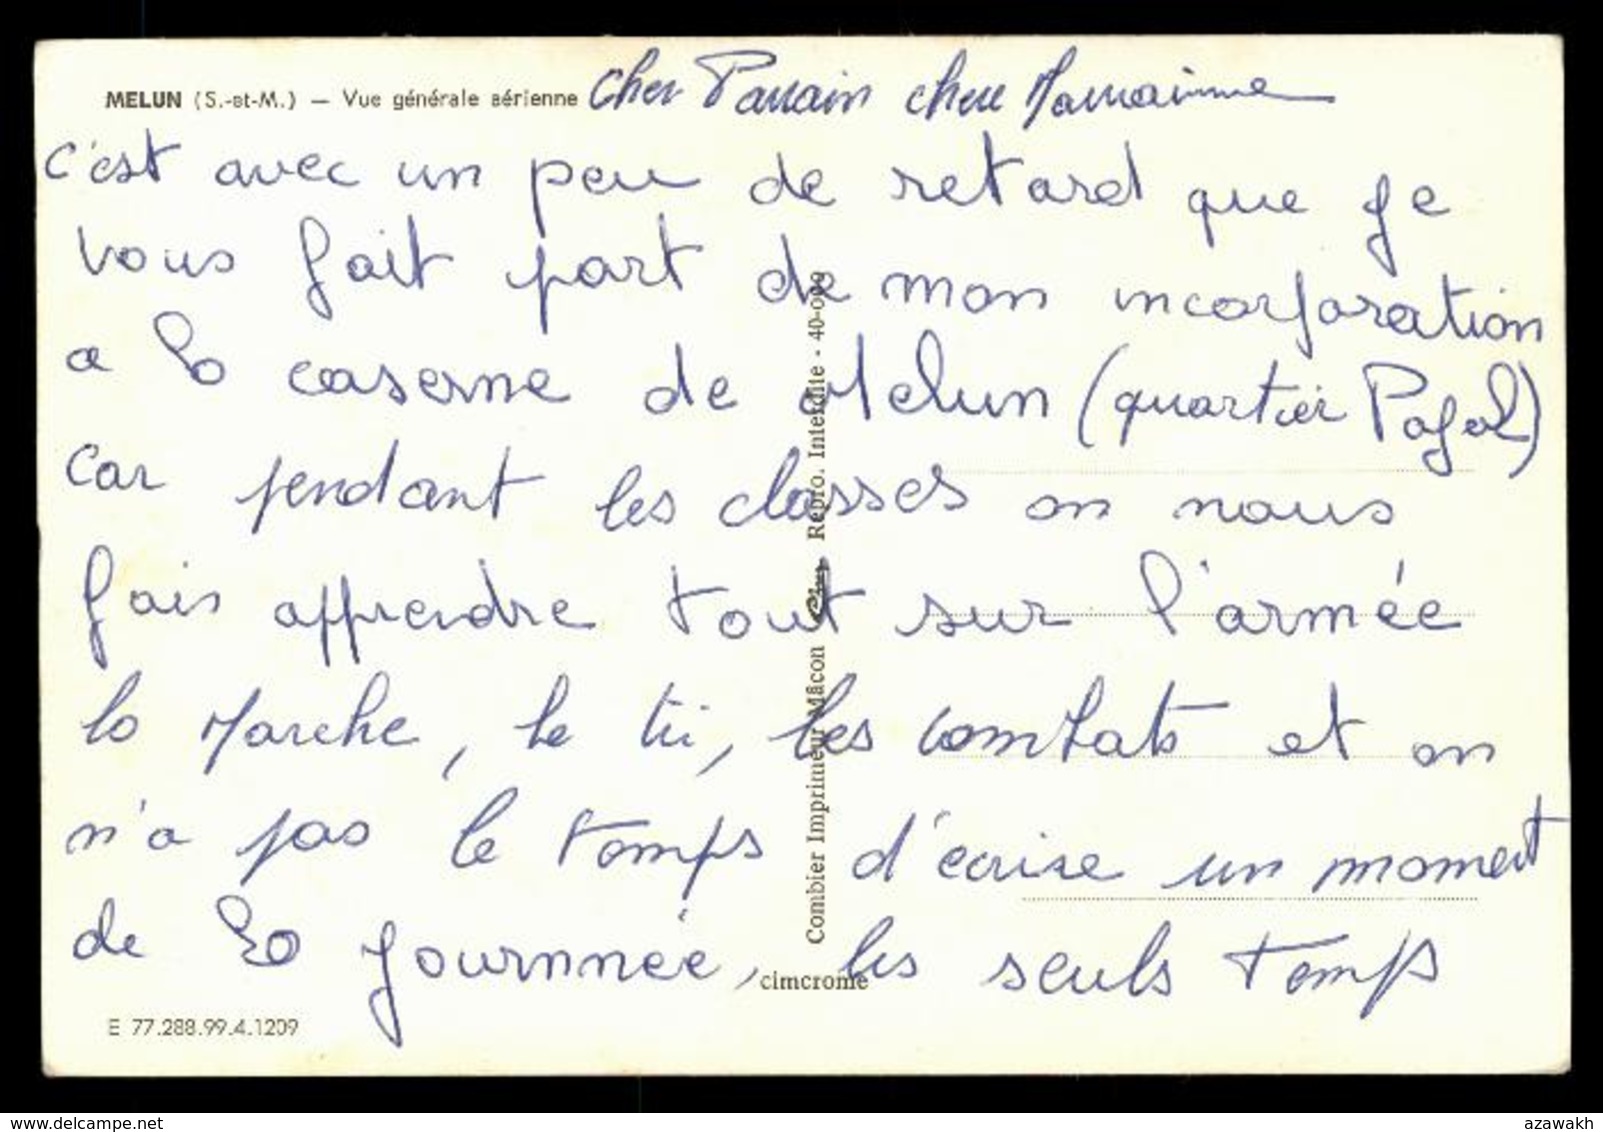 MELUN (S.-et-M.) — Vue générale aérienne
Cher Parrain chere Marrainne
c'est avec un peu de retard que je
vous fait part de mon incorporation
a la caserne de Melun (quartier Pajol)
car pendant les classes on nous
fais apprendre tout sur l'armée
la Marche, le tir, les combats et on
n'a pas le temps d'ecrire un moment
de la journnée, les seuls temps
Combier Imprimeur Mâcon Repro. Interdite - 40-009
cimcrome
E 77.288.99.4.1209
www.delcampe.net
azawakh